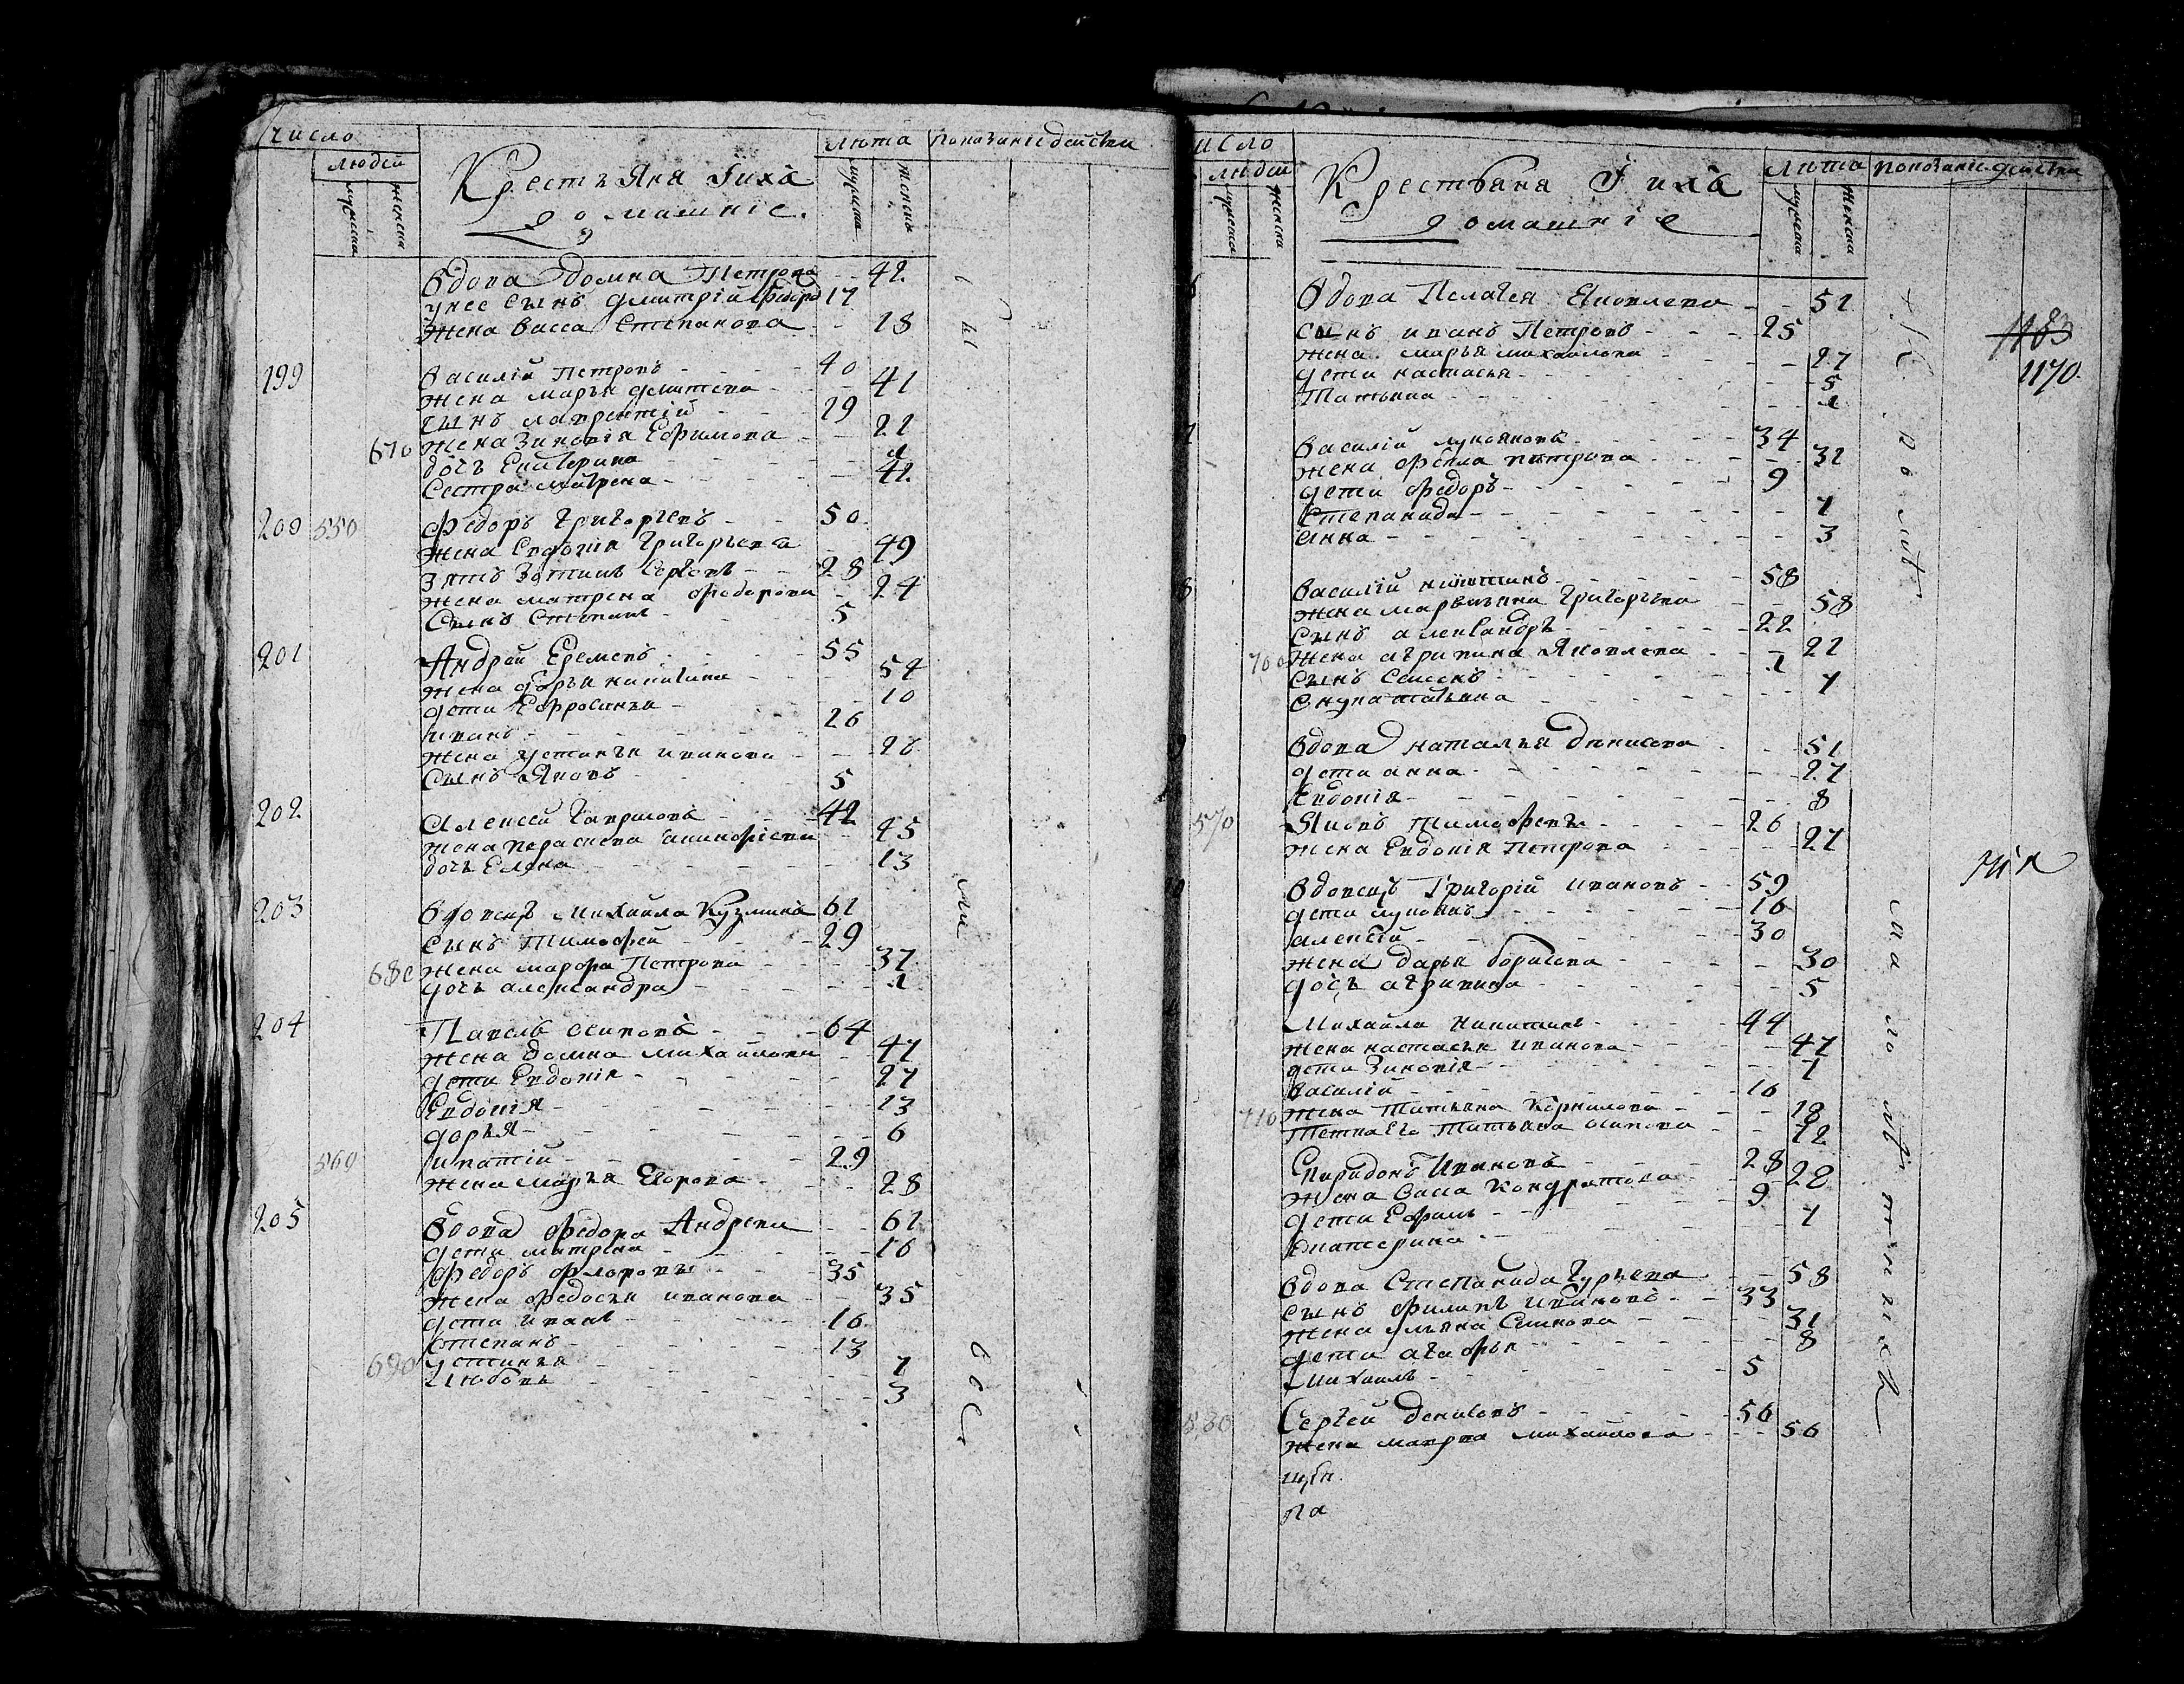 число
людей
мужеска
женска
Крестьяня Їихъ
домашнїе.
лѣта
мужеска
женска
показанїе действи
Вдова Домна Петрова - - 42
унее сынъ Дмитрїй Федоров 17
жена васса Степанова - - 18
199 Василїй Петровъ - - 40
жена марья - - 41
сынъ лаврентїй - - 19
670 жена Зиновїя Ефимова - - 21
дочь Екатерина - - 1
Сестра матрена - - 42
200 550 Федоръ Григорьевъ - - 50
жена Евдокїя Григорьева 49
зять Сергеевъ - - 28
жена матрена Федорова - 24
Сынъ Степанъ - 5
201 Андрей Еремеевъ - - 55
жена дарья никитина - - 54
дети Ефросинья - 10
иванъ - - 26
жена устинья иванова - - 26
Сынъ Яковъ - - 5
202 Алексей Гавриловъ - - 42
жена Параскева - - 45
дочь Елена - - 13
203 вдовецъ Михайла Кузминъ 61
сынъ Тимофей - - 29
680 жена марфа Петрова - - 37
дочь александра - - 1
204 Павелъ осиповъ - - 64
жена домна михайлова - - 47
дети Евдокїя - - 27
Евдокїя - - 13
дарья - - 6
560 ипатїй - - 29
жена марья Егорова - - 28
205 Вдова Федора Андреева - - 61
дети матрена - - 16
Федоръ Фроловъ - - 35
жена Федосья иванова - - 35
дети иванъ - - 16
степанъ - - 13
690 устинья - - 7
Любовь - - 3
число
людей
мужеска
женска
Крестьяня Їихъ
домашнїе
лѣта
мужеска
женска
показанїе действи
6 Вдова Пелагея Яковлева - - 51
сынъ иванъ Петровъ - - 25
жена марья михайлова - - 27
дети настасья - - 5
Татьяна - - 1
7 Василїй лукояновъ - - 34
жена Фекла петрова - - 31
дети Федоръ - - 9
Степанида - - 7
Анна - - 3
8 Василїй никитинъ - - 58
жена марьяна Григорьева - - 58
сынъ александръ - - 22
700 жена агрипина Яковлева - - 21
сынъ Семенъ - - 1
Снупа татьяна - - 7
9 Вдова наталья Денисова - - 51
дети анна - - 27
Евдокїя - - 8
570 Яковъ Тимофеевъ - - 26
жена Евдокїя Петрова - - 27
вдовецъ Григорїй ивановъ - - 59
дети лукоянъ - - 16
алексей - - 30
жена дарья борисова - - 30
дочь агрипина - - 5
Михайла Никитинъ - - 44
жена настасья иванова - - 47
дети Зиновїя - - 7
василїй - - 16
710 жена татьяна Корнилова - - 18
Тетка Его Татьяна осипова - - 72
Спиридонъ Ивановъ - - 28
жена васса Кондратова - - 28
дети Ефимъ - - 9
Екатерина - - 7
Вдова Степанида Гурьева - - 58
сынъ Филипъ ивановъ - - 33
жена ульяна Семенова - - 31
дети агафья - - 8
Михаилъ - - 5
580 Сергей Денисовъ - - 56
жена мавра михайлова - - 56
1183
1170.